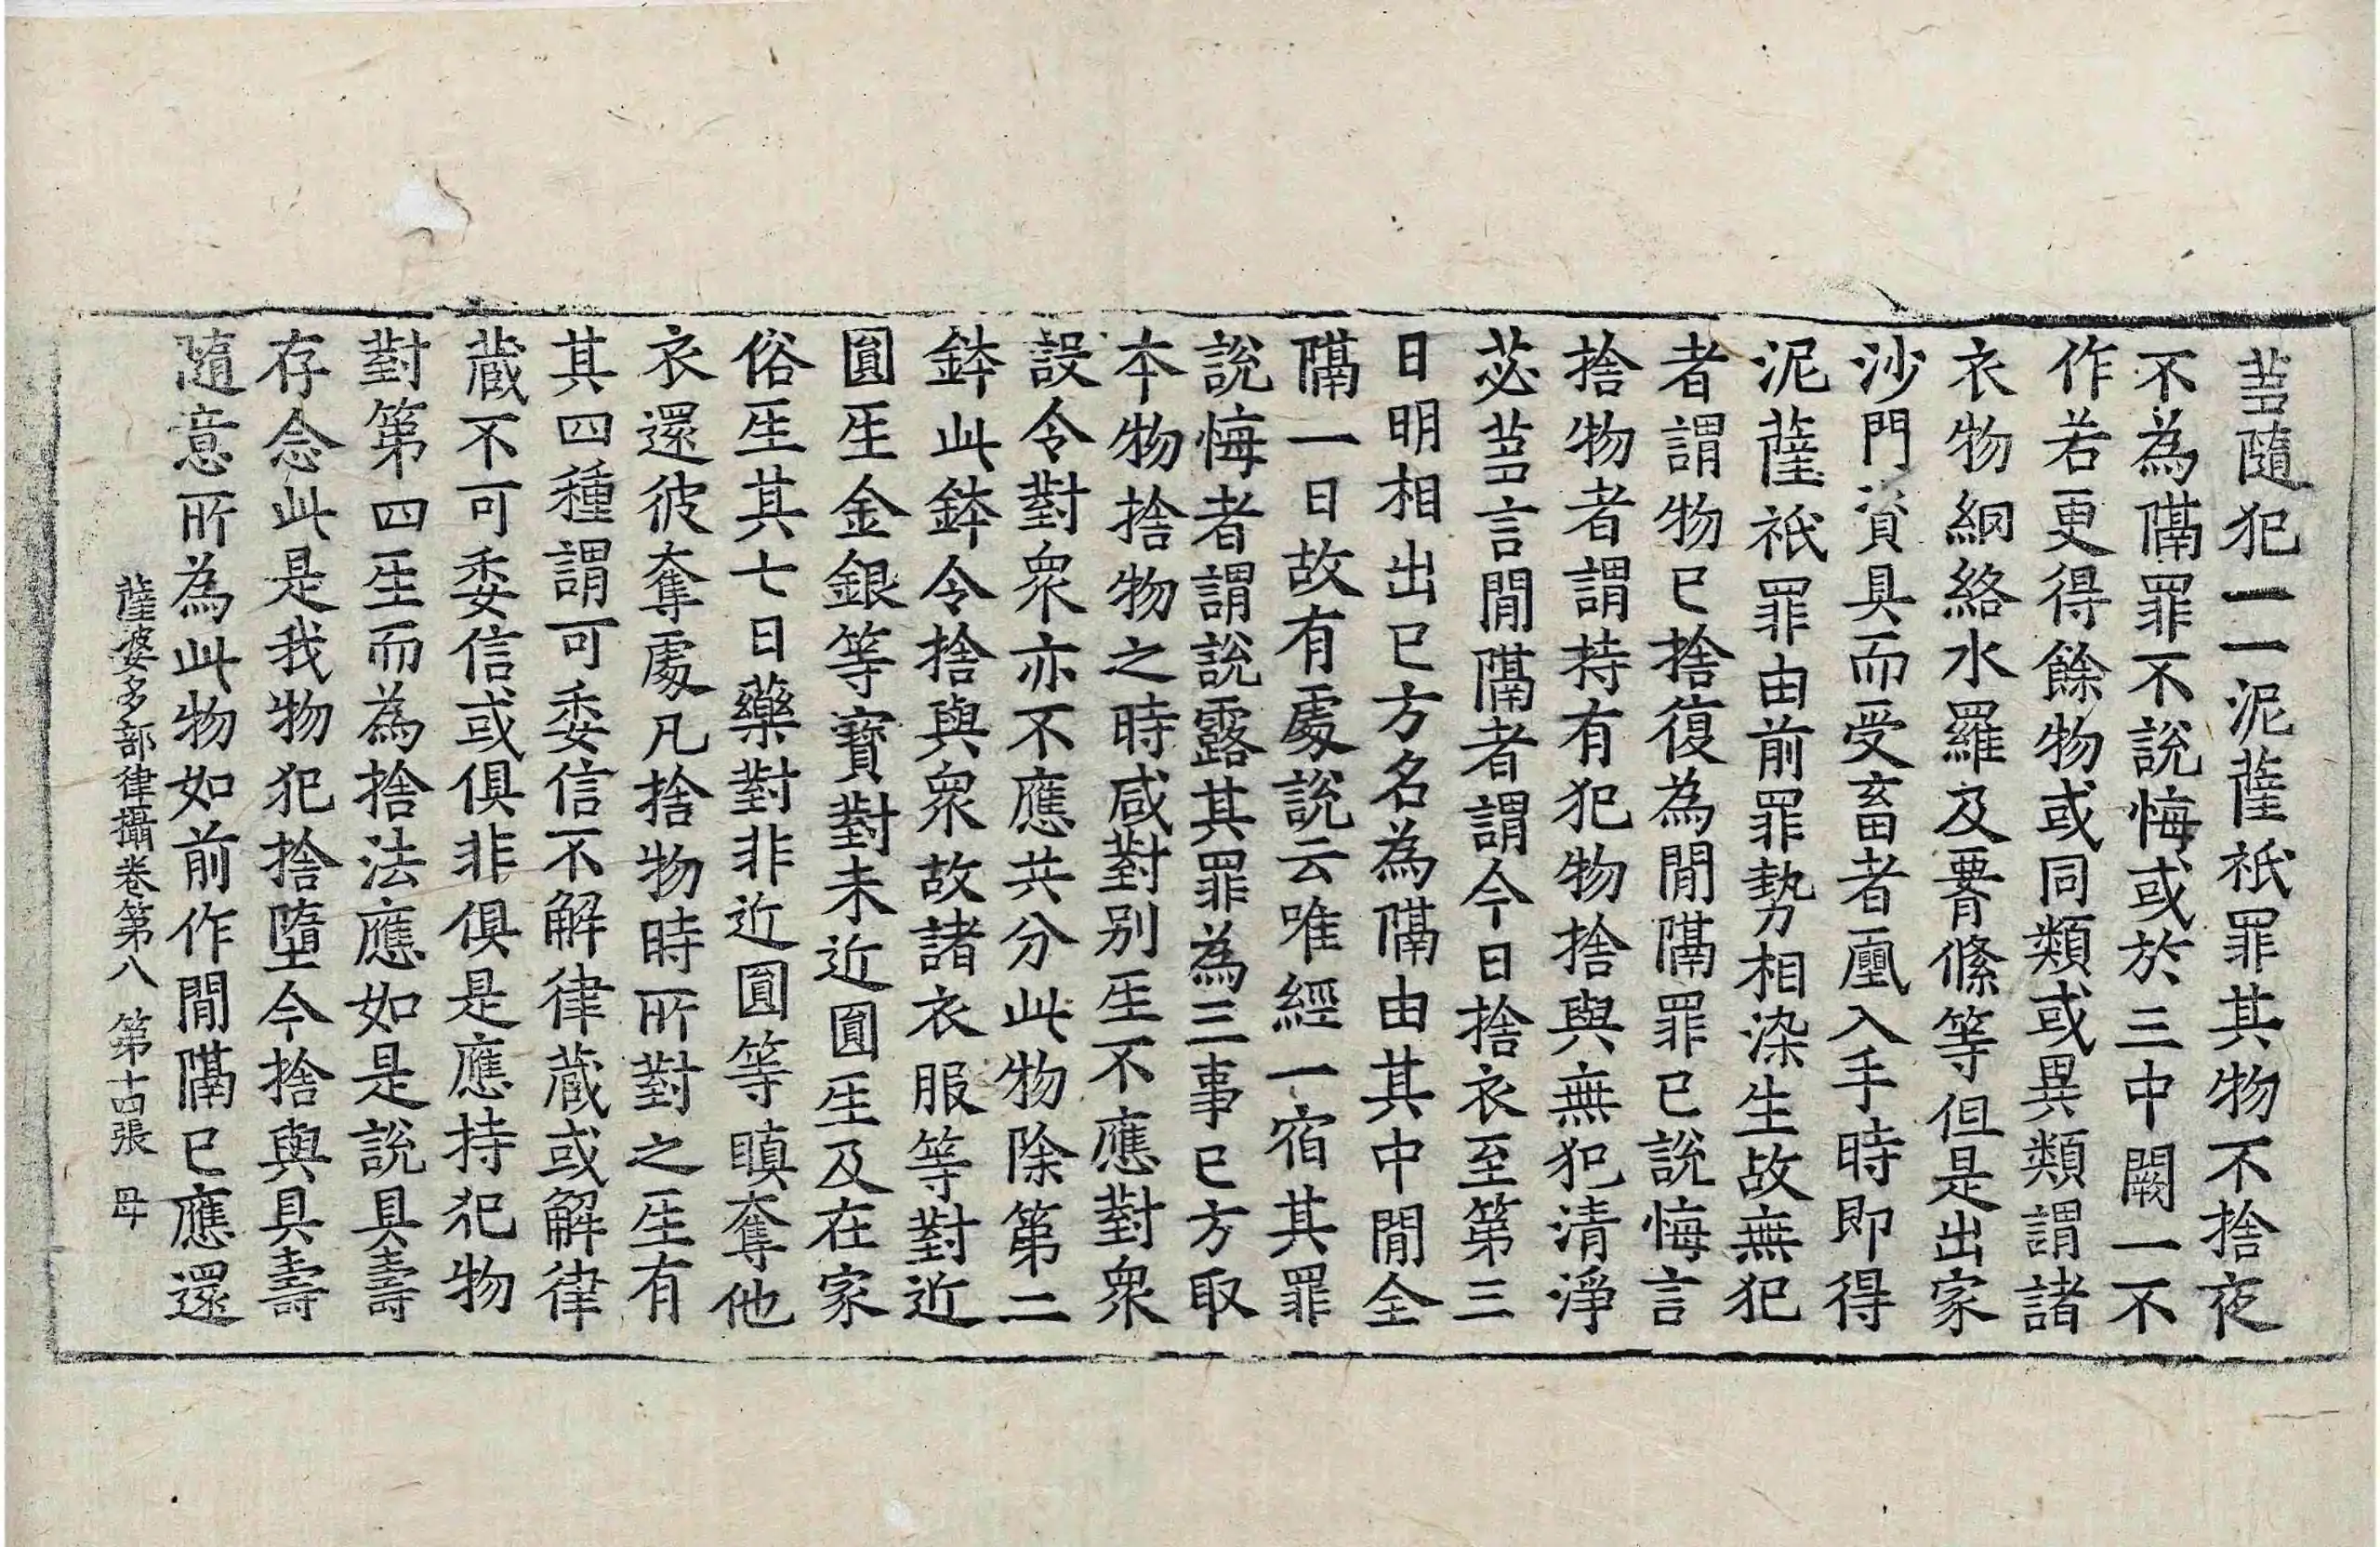 蒭隨犯一一泥薩祇罪其物不捨夜
不為隔罪不說悔或於三中闕一不
作若更得餘物或同類或異類謂諸
衣物絪絡水羅及要絛等但是出家
沙門資具而受畜者凰入手時即得
泥薩祇罪由前罪勢相染生故無犯
者謂物已捨復為閒隔罪已說悔言
捨物者謂持有犯物捨與無犯清淨
苾蒭言閒隔者謂今日捨衣至第三
日明相出已方名為隔由其中閒全
隔一日故有處說云唯經一宿其罪
說悔者謂說露其罪為三事已方取
本物捨物之時咸對別𤯔不應對衆
設令對衆亦不應共分此物除第二
鉢此鉢令捨與衆故諸衣服等對近
圓𤯔金銀等寶對未近圓𤯔及在家
俗𤯔其七日藥對非近圓等瞋奪他
衣還彼奪處凡捨物時所對之𤯔有
其四種謂可委信不解律藏或解律
藏不可委信或俱非俱是應持犯物
對第四𤯔而為捨法應如是說具壽
存念此是我物犯捨墮今捨與具壽
隨意所為此物如前作閒隔已應還
薩婆多部律攝卷第八 第十四張 母